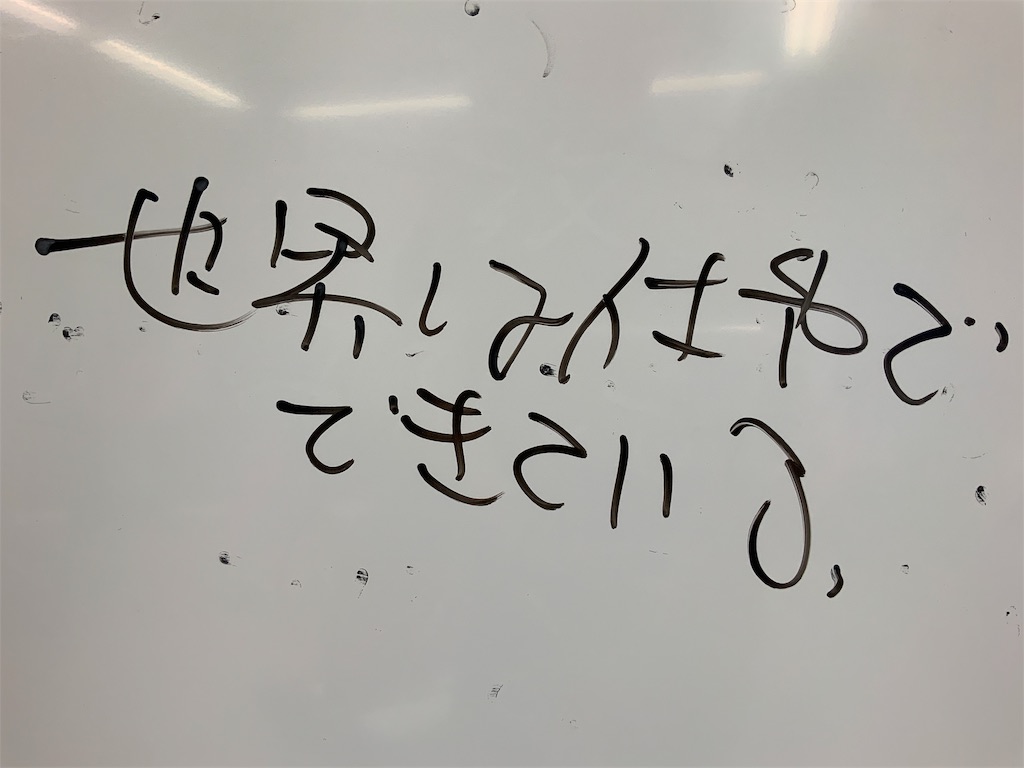 世界は仕事で
できている。